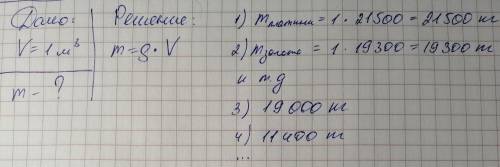 Дано:
V = 1 м³
m - ?
Решение:
m = ρ · V
1) m платины = 1 · 21500 = 21500 кг
2) m золота = 1 · 19300 = 19300 кг
и т.д
3) 19000 кг
4) 11400 кг
...